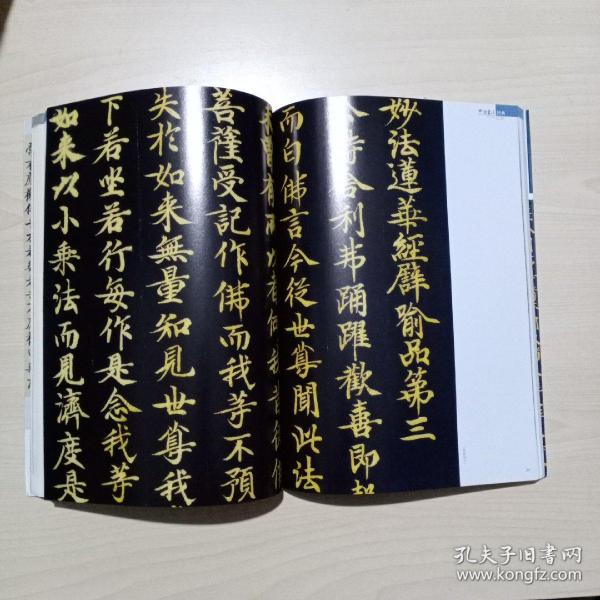 妙法蓮華經譬喻品第三
尒時舍利弗踊躍歡喜即起
而白佛言今從世尊聞此法
菩薩受記作佛而我䓁不預
失於如来無量知見世尊我
下若坐若行每作是念我䓁
如来以小乗法而見濟度是
孔夫子旧书网
www.kongfz.com